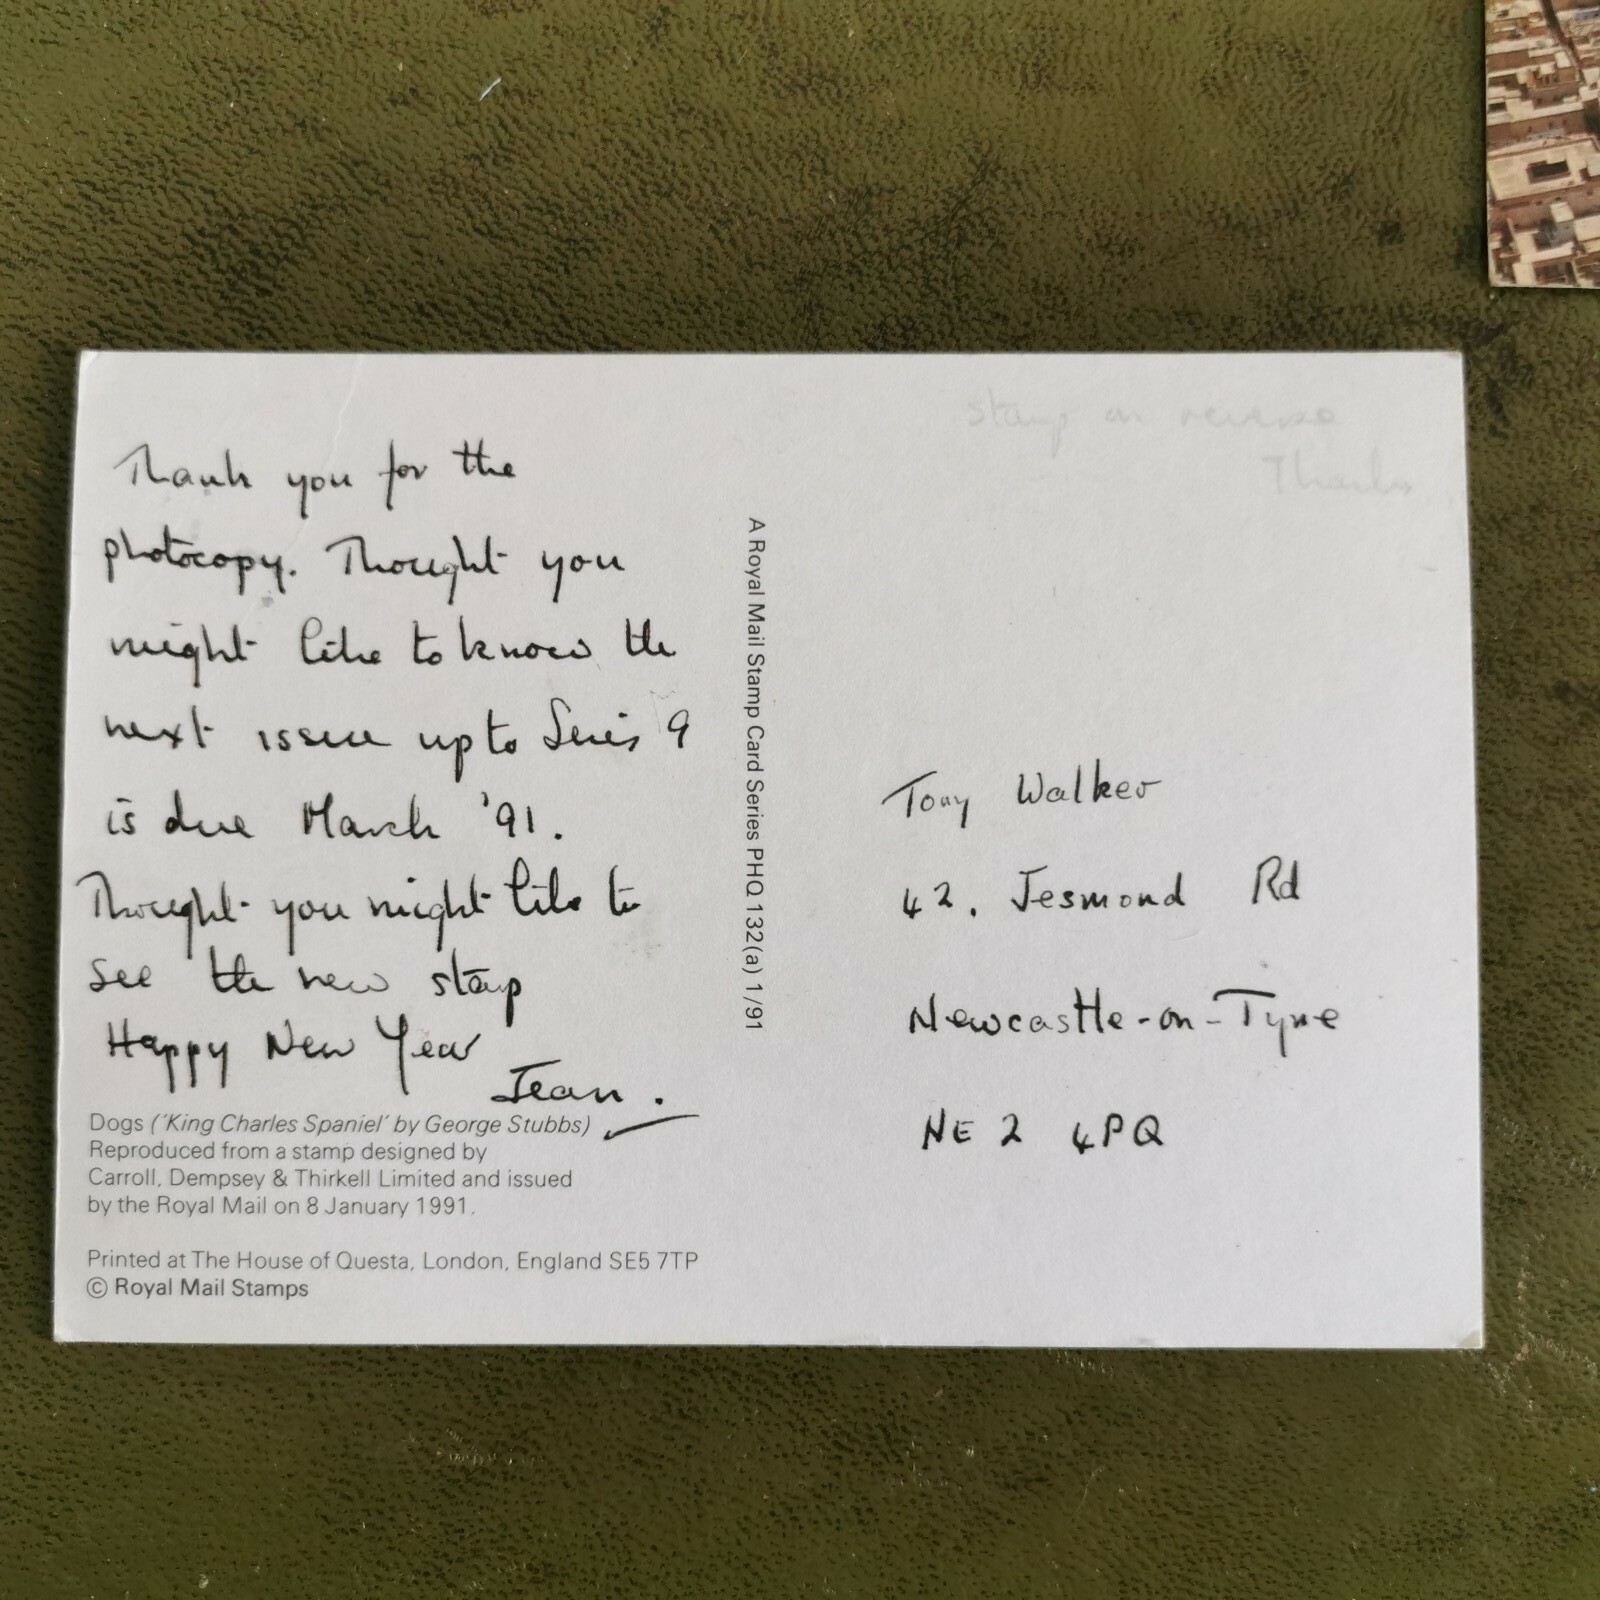 Thank you for the
photocopy. Thought you
might like to know the
next issue up to Series 9
is due March '91.
Thought you might like to
see the new stamp
Happy New Year
Jean.
Dogs ('King Charles Spaniel' by George Stubbs)
Reproduced from a stamp designed by
Carroll, Dempsey & Thirkell Limited and issued
by the Royal Mail on 8 January 1991.
Printed at The House of Questa, London, England SE5 7TP
© Royal Mail Stamps
A Royal Mail Stamp Card Series PHQ 132(a) 1/91
stamp on reverse
Thanks
Tony Walker
42. Jesmond Rd
Newcastle-on-Tyne
NE2 4PQ